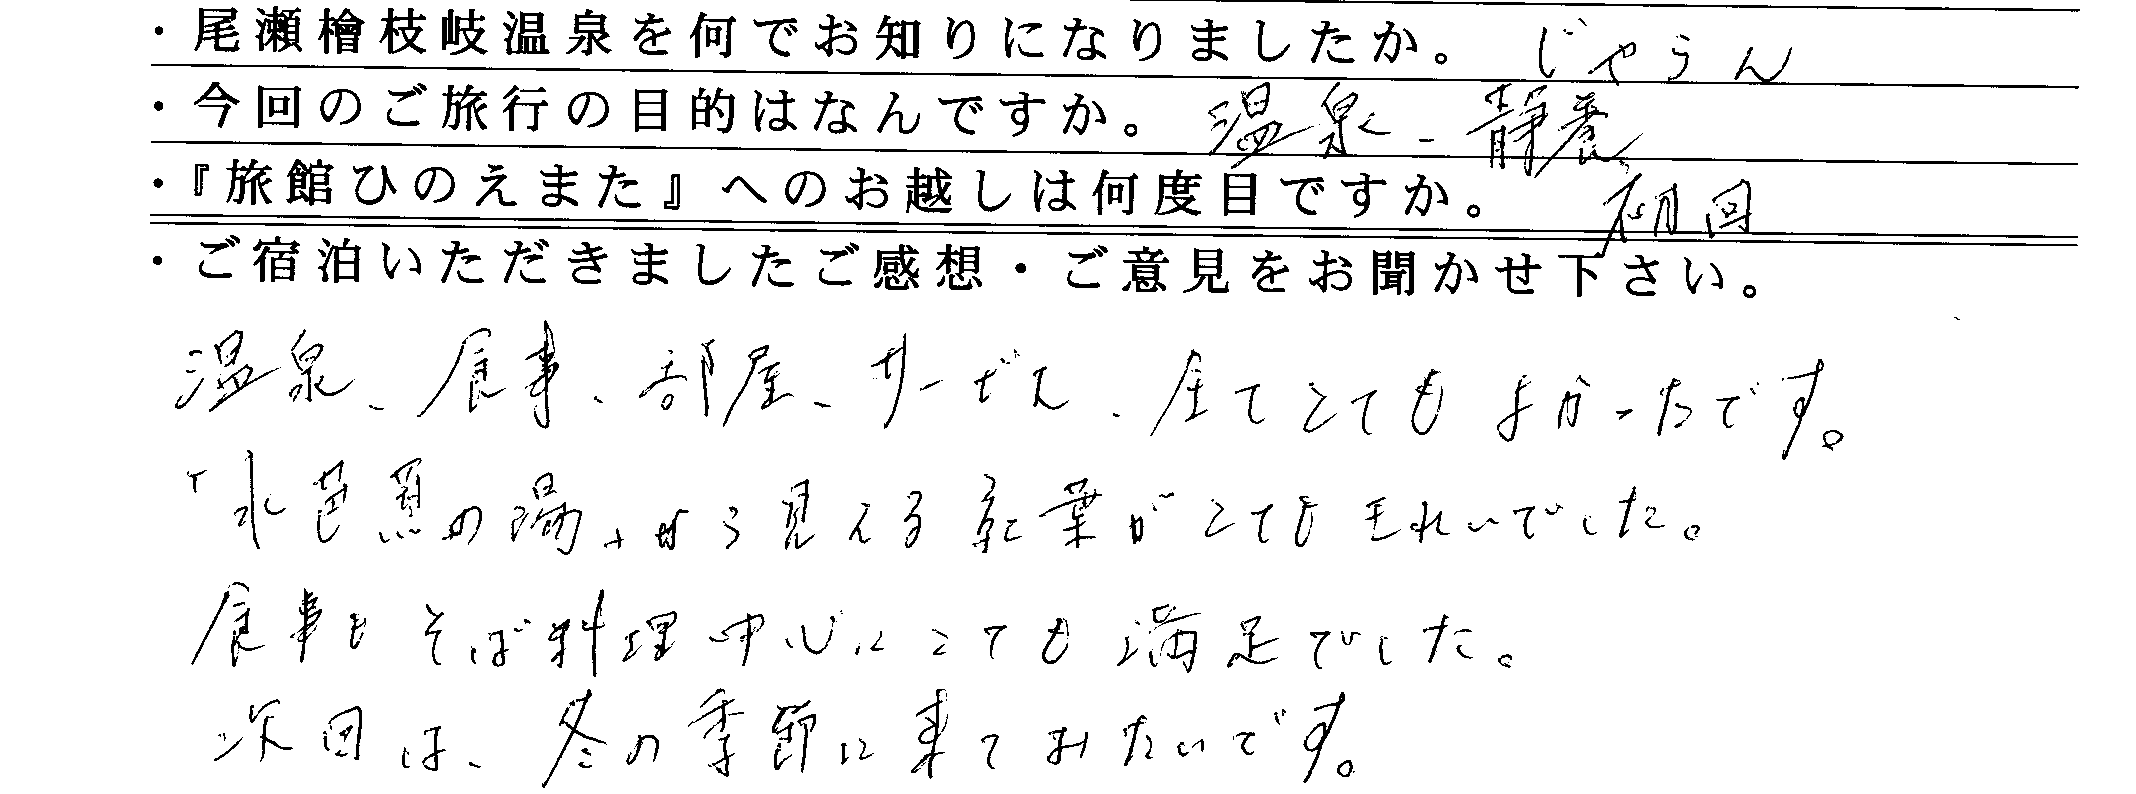 ・尾瀬檜枝岐温泉を何でお知りになりましたか。 じゃらん
・今回のご旅行の目的はなんですか。 温泉、静養
・『旅館ひのえまた』へのお越しは何度目ですか。 初回
・ご宿泊いただきましたご感想・ご意見をお聞かせ下さい。
温泉、食事、部屋、サービス、全てとてもよかったです。
「水芭蕉の湯」から見える紅葉がとてもきれいでした。
食事もそば料理中心にとても満足でした。
次回は、冬の季節に来てみたいです。